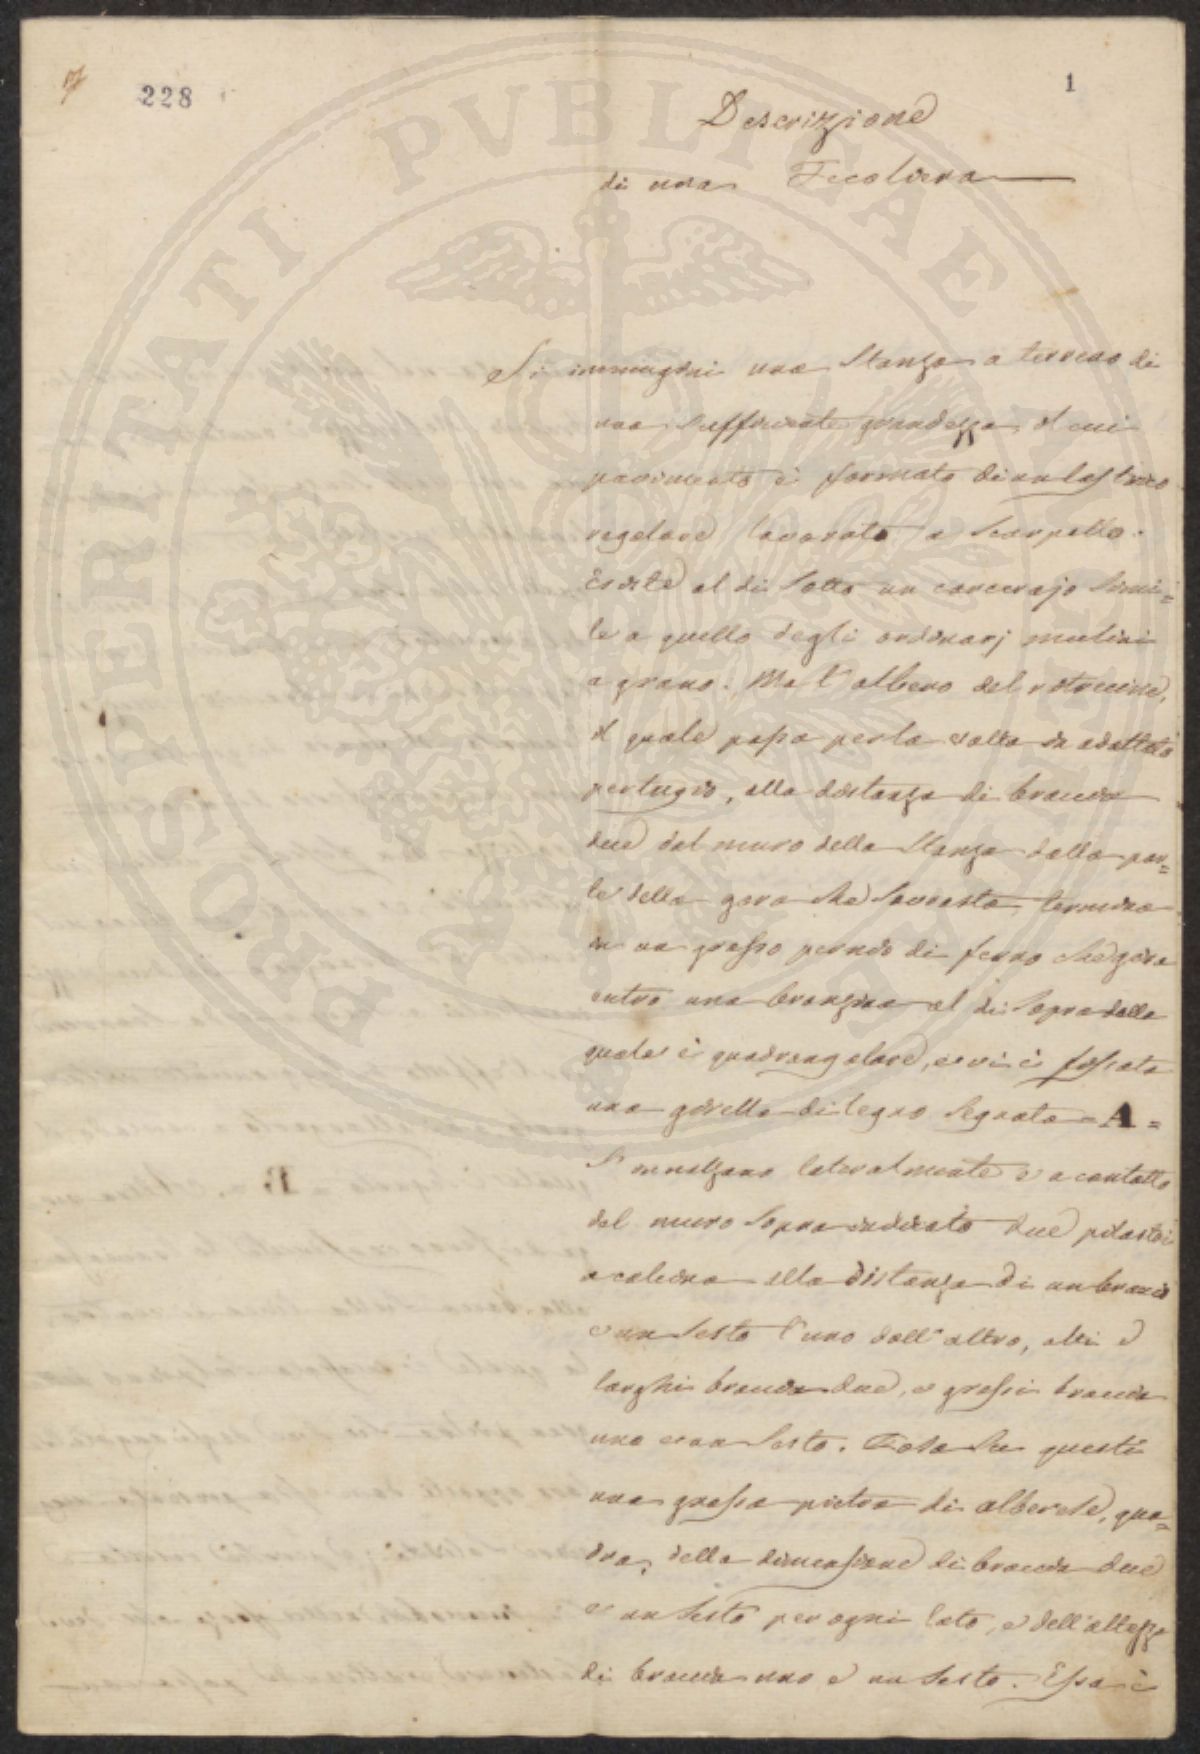 228
1
Descrizione
di una Fecoliera
Si immagini una Stanza a terreno di
una sufficiente grandezza, il cui
pavimento è formato di un lastrico
regolare lavorato a Scarpello.
Esiste al di Sotto un carcerajo Simi=
le a quello degli ordinarj mulini
a grano. Ma l'albero del rotrecine,
il quale passa per la volta in adattato
pertugio, alla distanza di braccia
due dal muro della Stanza dalla par=
te della gora che Sovrasta, termina
in un grosso pernio di ferro che gira
entro una bronzina al di Sopra della
quale è quadrangolare, e vi è fissata
una girella di legno Segnata = A =
S'innalzano lateralmente e a contatto
del muro Sopra indicato due pilastri
a calcina alla distanza di un braccio
e un Sesto l'uno dall'altro, alti e
larghi braccia due, e grossi braccia
uno e un Sesto. Posa Su questi
una grossa pietra di alberese, qua=
dra, della dimensione di braccia due
e un Sesto per ogni lato, e dell'altezza
di braccia uno e un Sesto. Essa è
PROSPERITATI PVBLICAE